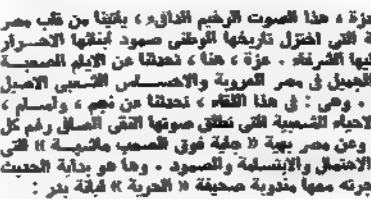 عزة ، هذا الصوت الرخيم الدافىء ، يأتينا من قلب مصر
ة التي اختزل تاريخها الوطني صمود ابنائها الاحرار
فيها الشرفاء . عزة ، هنا ، تحدثنا عن الايام الصعبة
الجميل في مصر العروبة والاحساس الشعبي الاصيل
. وهي : في هذا اللقاء ، تحدثنا عن نجم ، وامام ،
الاحياء الشعبية التي تعشق صوتها النقي الصافي رغم كل
وعن مصر بهية « جاية فوق الصعب ماشية » التي
الاحتمال والابتسامة والصمود . وها هو بداية الحديث
جرته معها مندوبة صحيفة « الحرية » لبانة بدر :